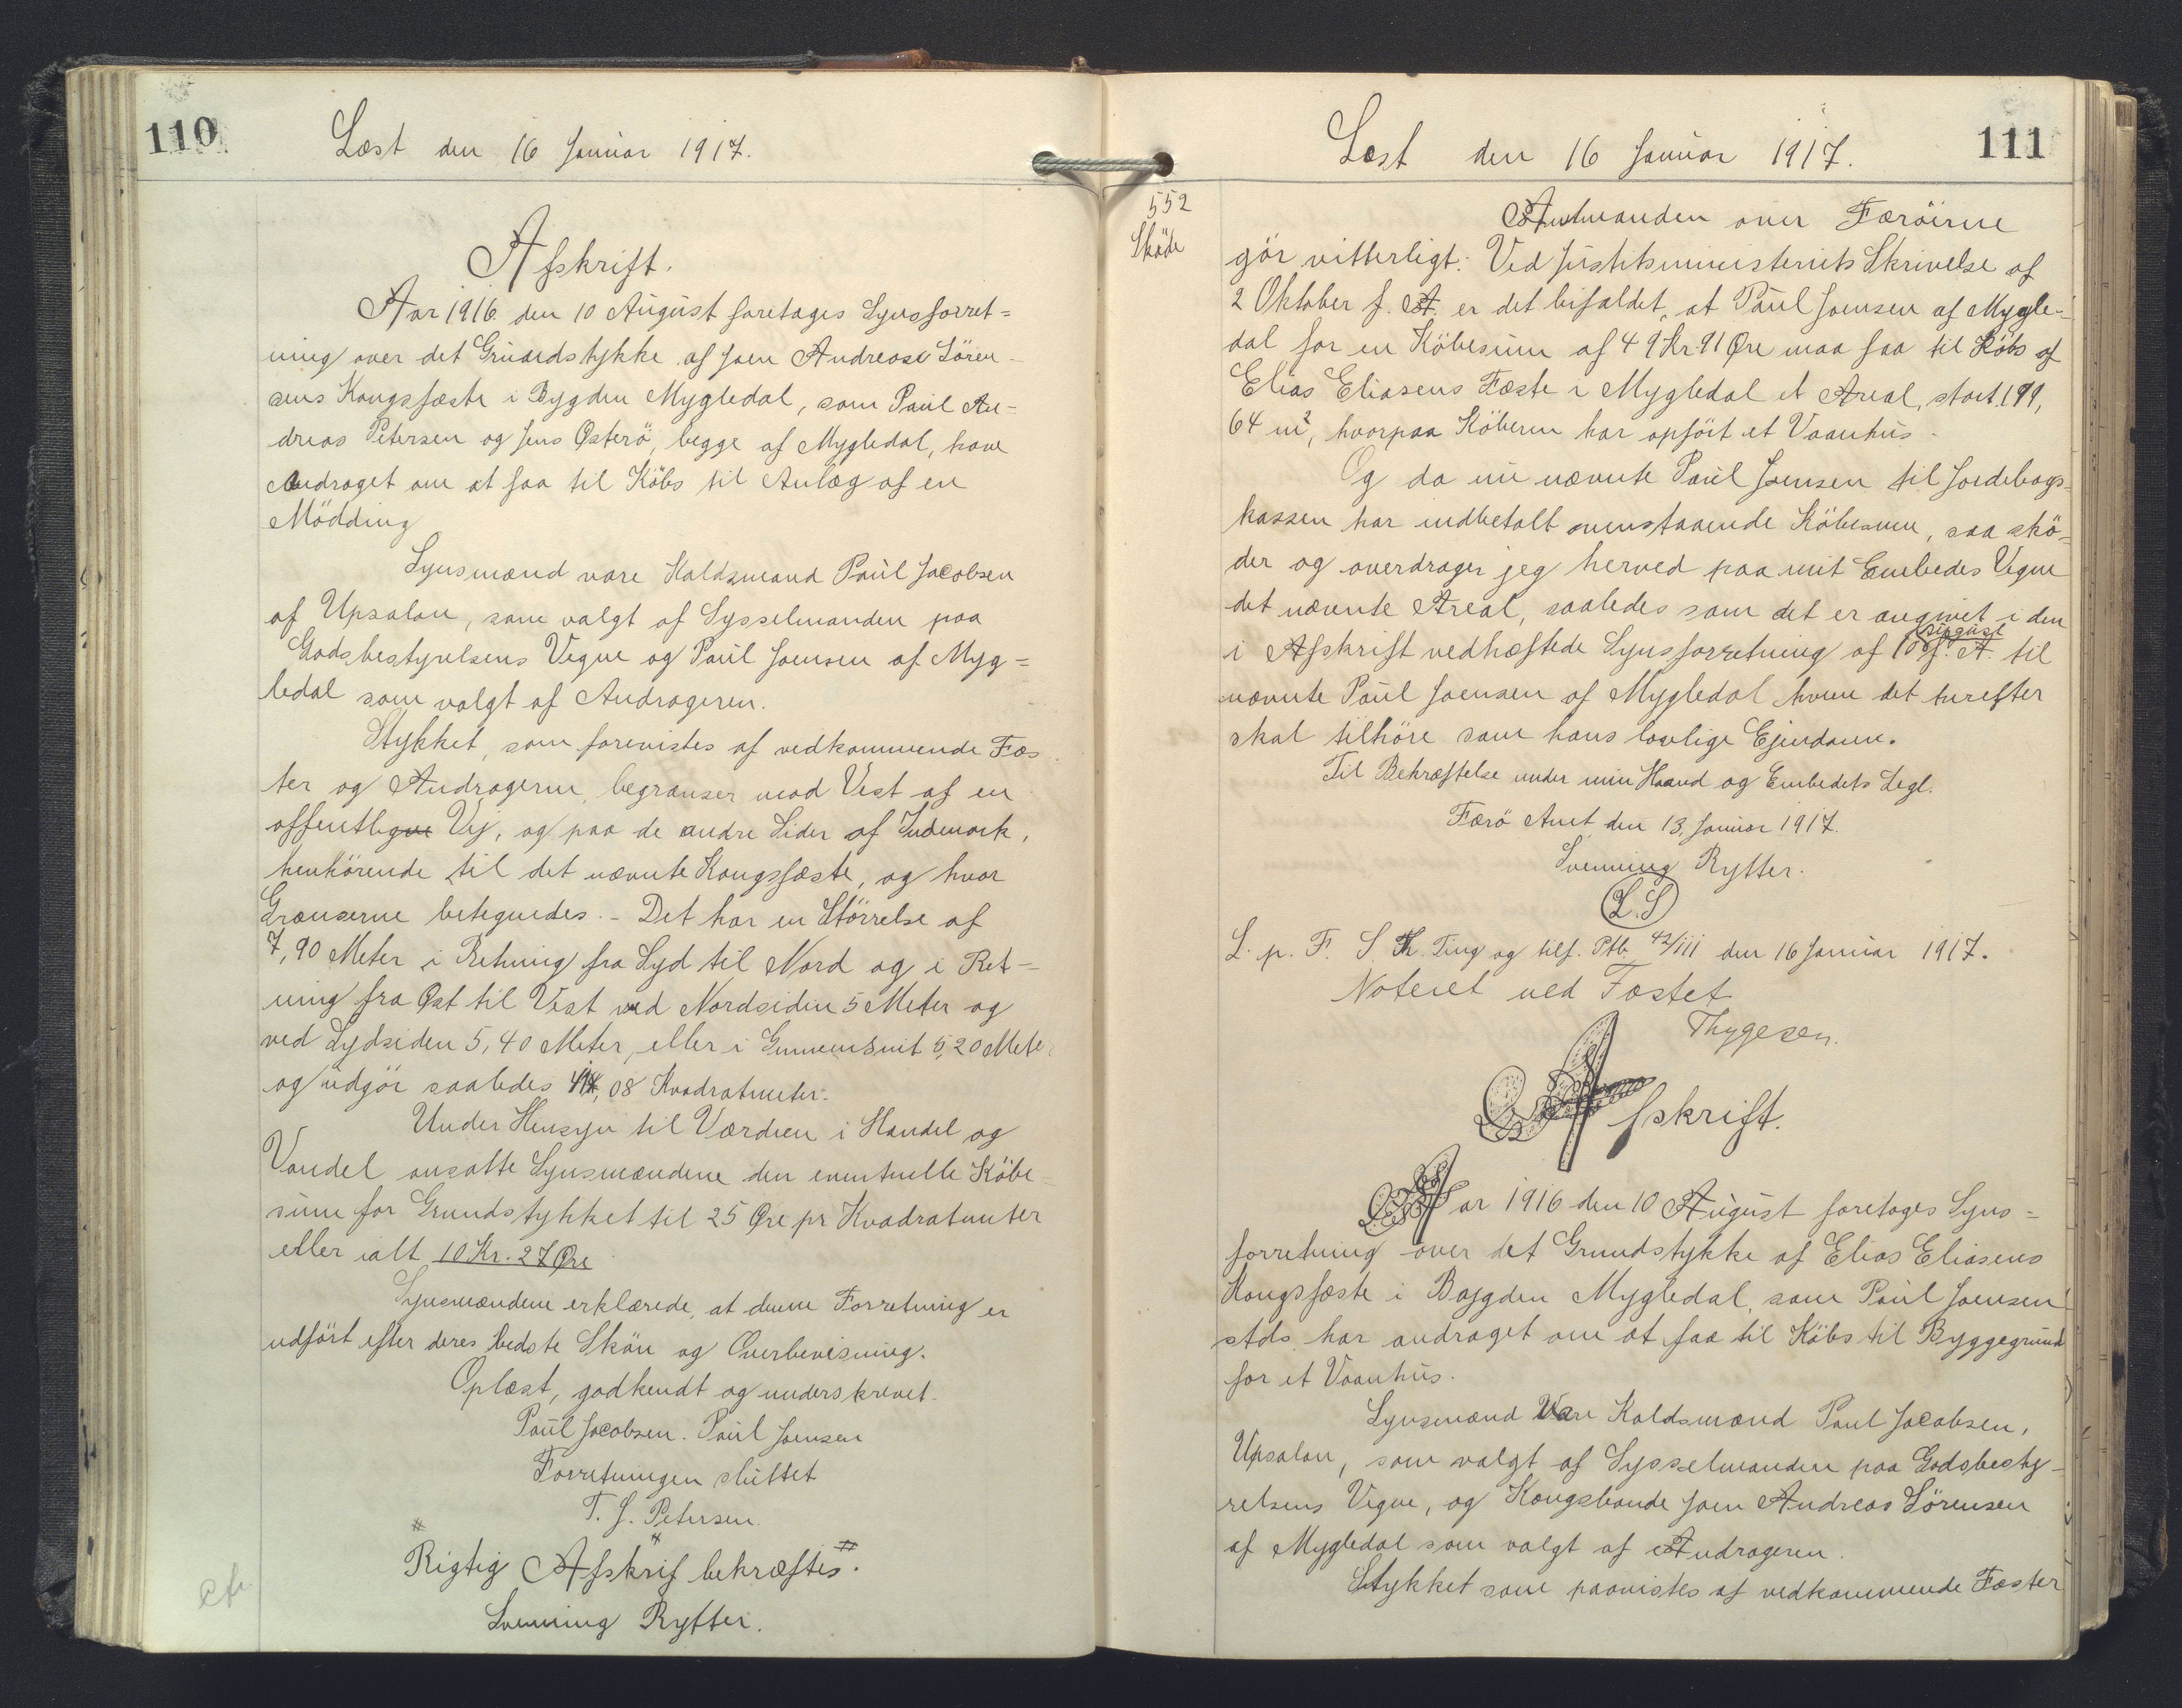 110
Læst den 16 Januar 1917.
Afskrift.
Aar 1916 den 10 August foretages Synsforret=
ning over det Grundstykke af Joen Andreas Sören-
sens Kongsfæste i Bygden Mygledal, som Paul An-
dreas Petersen og Jens Østerö, begge af Mygledal, have
Andraget om at faa til Köbs til Anlæg af en
Mödding
Synsmænd vare Haldsmand Paul Jacobsen
af Upsalon, som valgt af Sysselmanden paa
Godsbestyrelsens Vegne og Paul Joensen af Myg=
ledal som valgt af Andrageren.
Stykket, som forevistes af vedkommende Fæs
ter og Andragerne, begrænser mod Vest af en
offentligne Vej, og paa de andre Sider af Indmark,
henhörende til det nævnte Kongsfæste, og hvor
Grænserne betegnedes. - Det har en Störrelse af
7,90 Meter i Retning fra Syd til Nord og i Ret-
ning fra Øst til Vest ved Nordsiden 5 Meter og
ved Sydsiden 5,40 Meter, eller i Gennemsnit 5,20 Meter
og udgör saaledes 41,08 Kvadratmeter.
Under Hensyn til Værdien i Handel og
Vandel ansatte Synsmændene den eventuelle Köbe-
sum for Grundstykket til 25 Øre pr Kvadratmeter
eller ialt 10 Kr. 27 Øre
Synsmændene erklærede, at denne Forretning er
udfört efter deres bedste Skön og Overbevisning.
Oplæst, godkendt og underskrevet.
Paul Jacobsen. Paul Joensen
Forretningen sluttet
T. J. Petersen.
Rigtig Afskrif bekræftes.
Svenning Rytter.
111
Læst den 16 Januar 1917.
552
Sköde
Amtmanden over Færöerne
gör vitterligt: Ved Justitsministeriets Skrivelse af
2 Oktober f. A. er det bifaldet, at Paul Joensen af Mygle-
dal for en Köbesum af 49 Kr. 91 Øre maa faa til Köbs af
Elias Eliasens Fæste i Mygledal et Areal, stort 199,
64 m², hvorpaa Köberen har opfört et Vaanhus.
Og da nu nævnte Paul Joensen til Jordebogs-
kassen har indbetalt ovenstaaende Köbesum, saa skö-
der og overdrager jeg herved paa mit Embedes Vegne
det nævnte Areal, saaledes som det er angivet i den
i Afskrift vedhæftede Synsforretning af 10 August f. A. til
nævnte Paul Joensen af Mygledal hvem det herefter
skal tilhöre som hans lovlige Ejendom.
Til Bekræftelse under min Haand og Embedets Segl.
Færö Amt, den 13, Januar 1917.
Svenning Rytter.
L.S
L. p. F. S. Th. Ting og tilf. Ptb. 42/111 den 16 Januar 1917.
Noteret ved Fæstet
Thygesen.
Afskrift.
Aar 1916 den 10 August foretages Syns=
forretning over det Grundstykke af Elias Eliasens
Kongsfæste i Bøygden Mygledal, som Paul Joensen
stds. har andraget om at faa til Köbs til Byggegrund
for et Vaanhus.
Synsmænd Vare Kaldsmand Paul Jacobsen,
Upsalon, som valgt af Sysselmanden paa Godsbesty-
relsens Vegne, og Kongsbonde Joen Andreas Sörensen
af Mygledal som valgt af Andrageren.
Stykket som paavistes af vedkommende Fæster